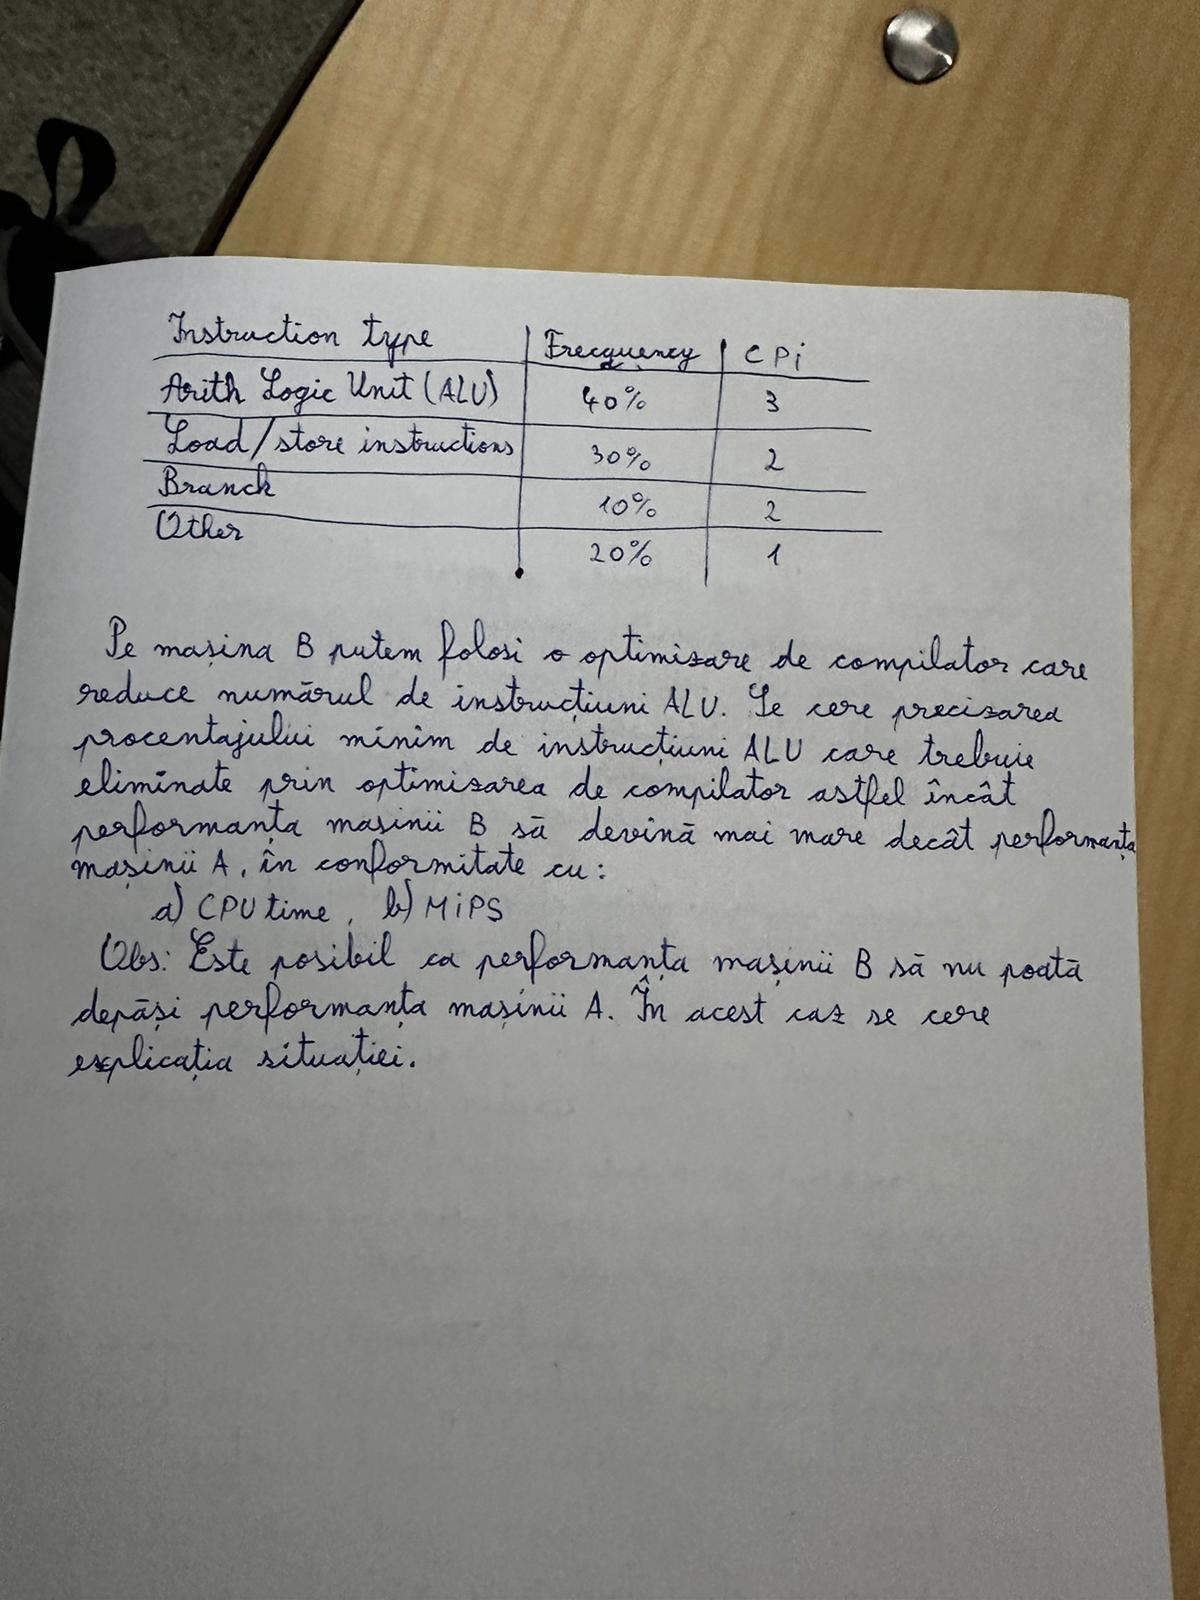 Instruction type | Frecquency | CPi
Arith Logic Unit (ALU) | 40% | 3
Load/store instructions | 30% | 2
Branch | 10% | 2
Other | 20% | 1
Pe mașina B putem folosi o optimizare de compilator care
reduce numărul de instrucțiuni ALU. Se cere precizarea
procentajului minim de instrucțiuni ALU care trebuie
eliminate prin optimizarea de compilator astfel încât
performanța mașinii B să devină mai mare decât performanța
mașinii A, în conformitate cu:
a) CPU time, b) MiPS
Obs: Este posibil ca performanța mașinii B să nu poată
depăși performanța mașinii A. În acest caz se cere
explicația situației.